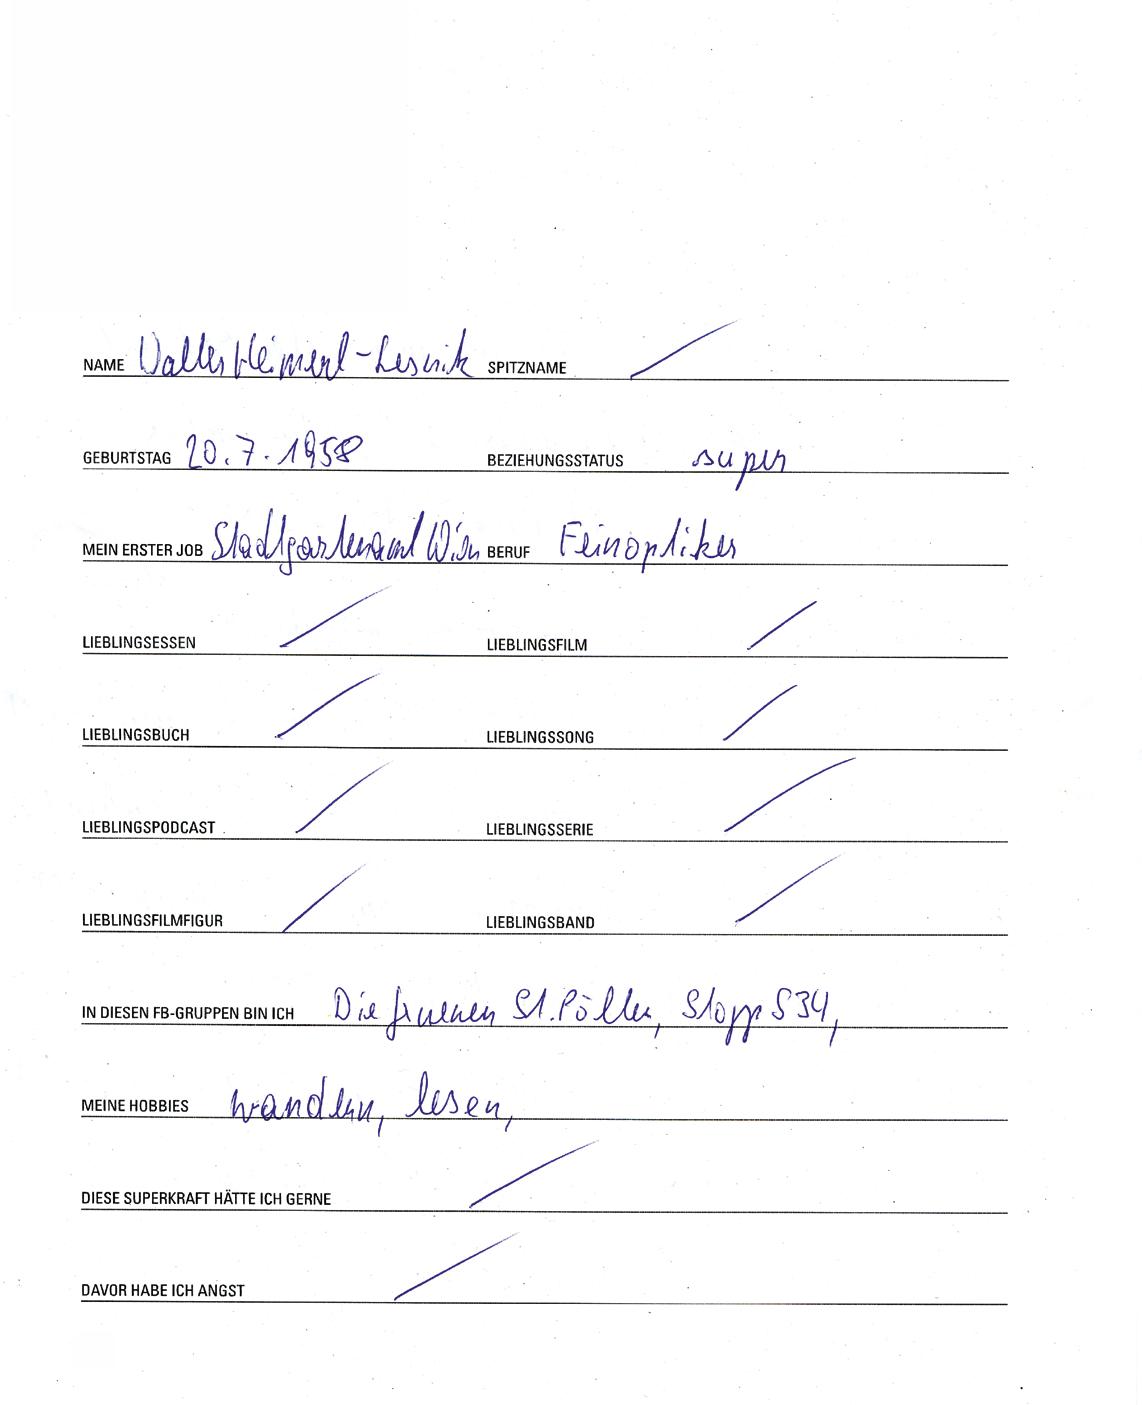 NAME Walter Heimerl-Lesnik SPITZNAME /
GEBURTSTAG 20.7.1958 BEZIEHUNGSSTATUS super
MEIN ERSTER JOB Stadtgartenamt Wien BERUF Feinoptiker
LIEBLINGSESSEN / LIEBLINGSFILM /
LIEBLINGSBUCH / LIEBLINGSSONG /
LIEBLINGSPODCAST / LIEBLINGSSERIE /
LIEBLINGSFILMFIGUR / LIEBLINGSBAND /
IN DIESEN FB-GRUPPEN BIN ICH Die Gruenen St. Pölten, Stopp S34,
MEINE HOBBIES wandern, lesen,
DIESE SUPERKRAFT HÄTTE ICH GERNE /
DAVOR HABE ICH ANGST /